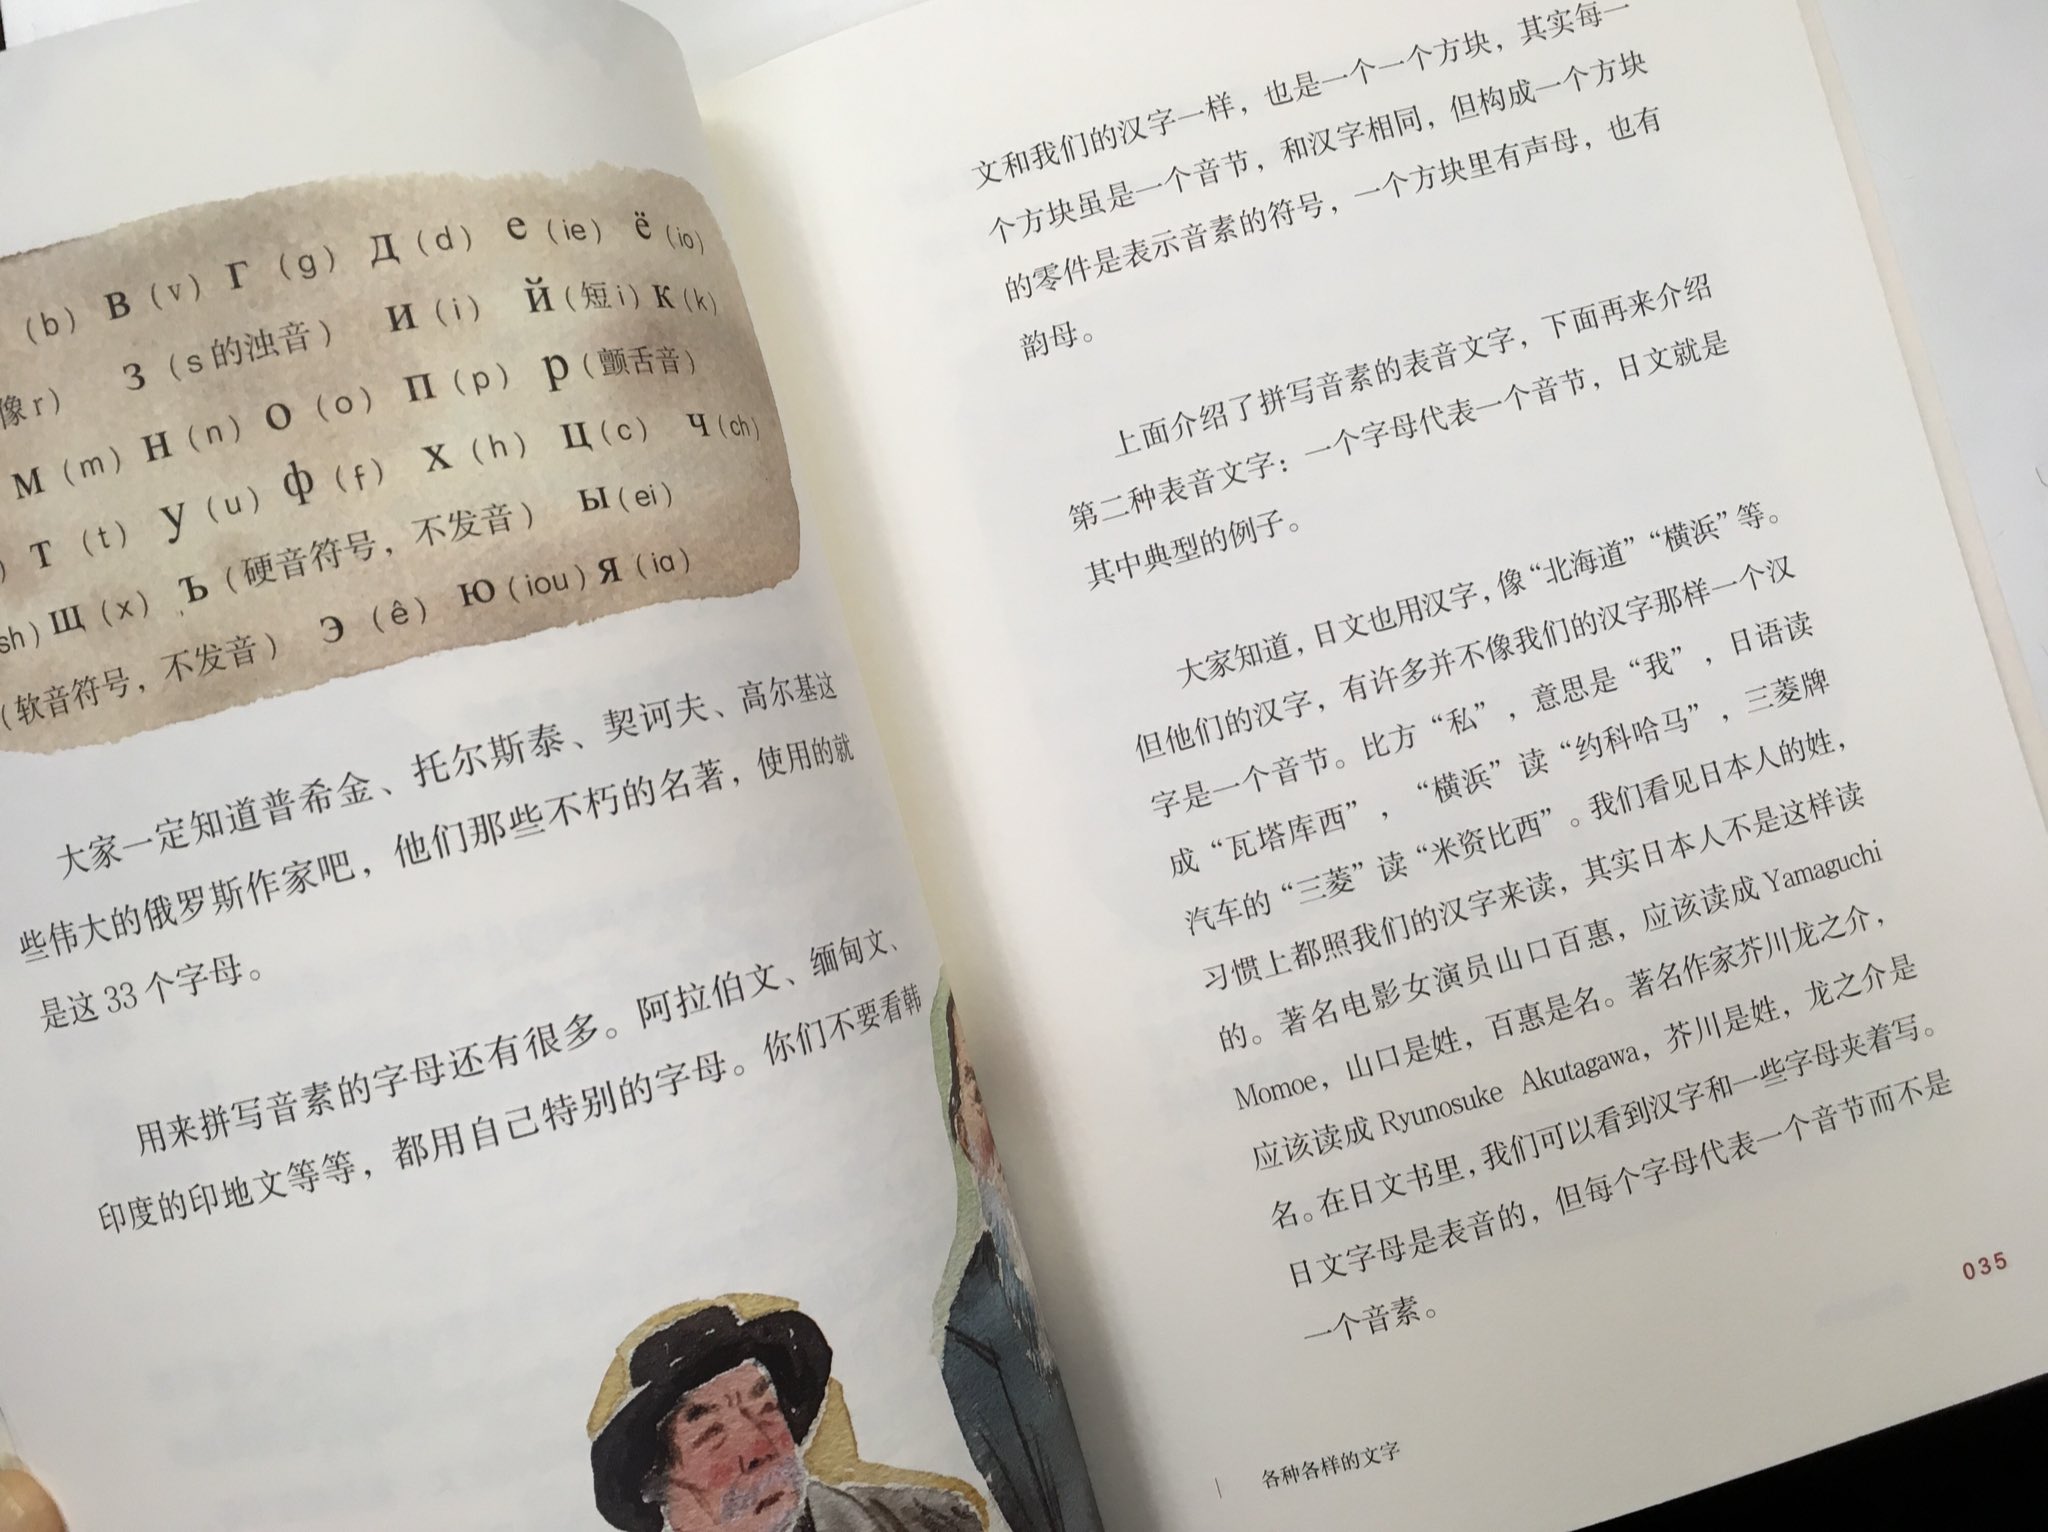 (b) В (v) Г (g) Д (d) е (ie) ё (io)
像r) З (s的浊音) И (i) Й (短i) К (k)
М (m) Н (n) О (o) П (p) р (颤舌音)
Т (t) у (u) ф (f) Х (h) Ц (c) Ч (ch)
sh) Щ (x) Ъ (硬音符号，不发音) Ы (ei)
(软音符号，不发音) Э (ê) Ю (iou) Я (ia)
大家一定知道普希金、托尔斯泰、契诃夫、高尔基这
些伟大的俄罗斯作家吧，他们那些不朽的名著，使用的就
是这33个字母。
用来拼写音素的字母还有很多。阿拉伯文、缅甸文、
印度的印地文等等，都用自己特别的字母。你们不要看韩
文和我们的汉字一样，也是一个一个方块，其实每一
个方块虽是一个音节，和汉字相同，但构成一个方块
的零件是表示音素的符号，一个方块里有声母，也有
韵母。
上面介绍了拼写音素的表音文字，下面再来介绍
第二种表音文字：一个字母代表一个音节，日文就是
其中典型的例子。
大家知道，日文也用汉字，像“北海道”“横浜”等。
但他们的汉字，有许多并不像我们的汉字那样一个汉
字是一个音节。比方“私”，意思是“我”，日语读
成“瓦塔库西”，“横浜”读“约科哈马”，三菱牌
汽车的“三菱”读“米资比西”。我们看见日本人的姓，
习惯上都照我们的汉字来读，其实日本人不是这样读
的。著名电影女演员山口百惠，应该读成 Yamaguchi
Momoe，山口是姓，百惠是名。著名作家芥川龙之介，
应该读成 Ryunosuke Akutagawa，芥川是姓，龙之介是
名。在日文书里，我们可以看到汉字和一些字母夹着写。
日文字母是表音的，但每个字母代表一个音节而不是
一个音素。
035
各种各样的文字